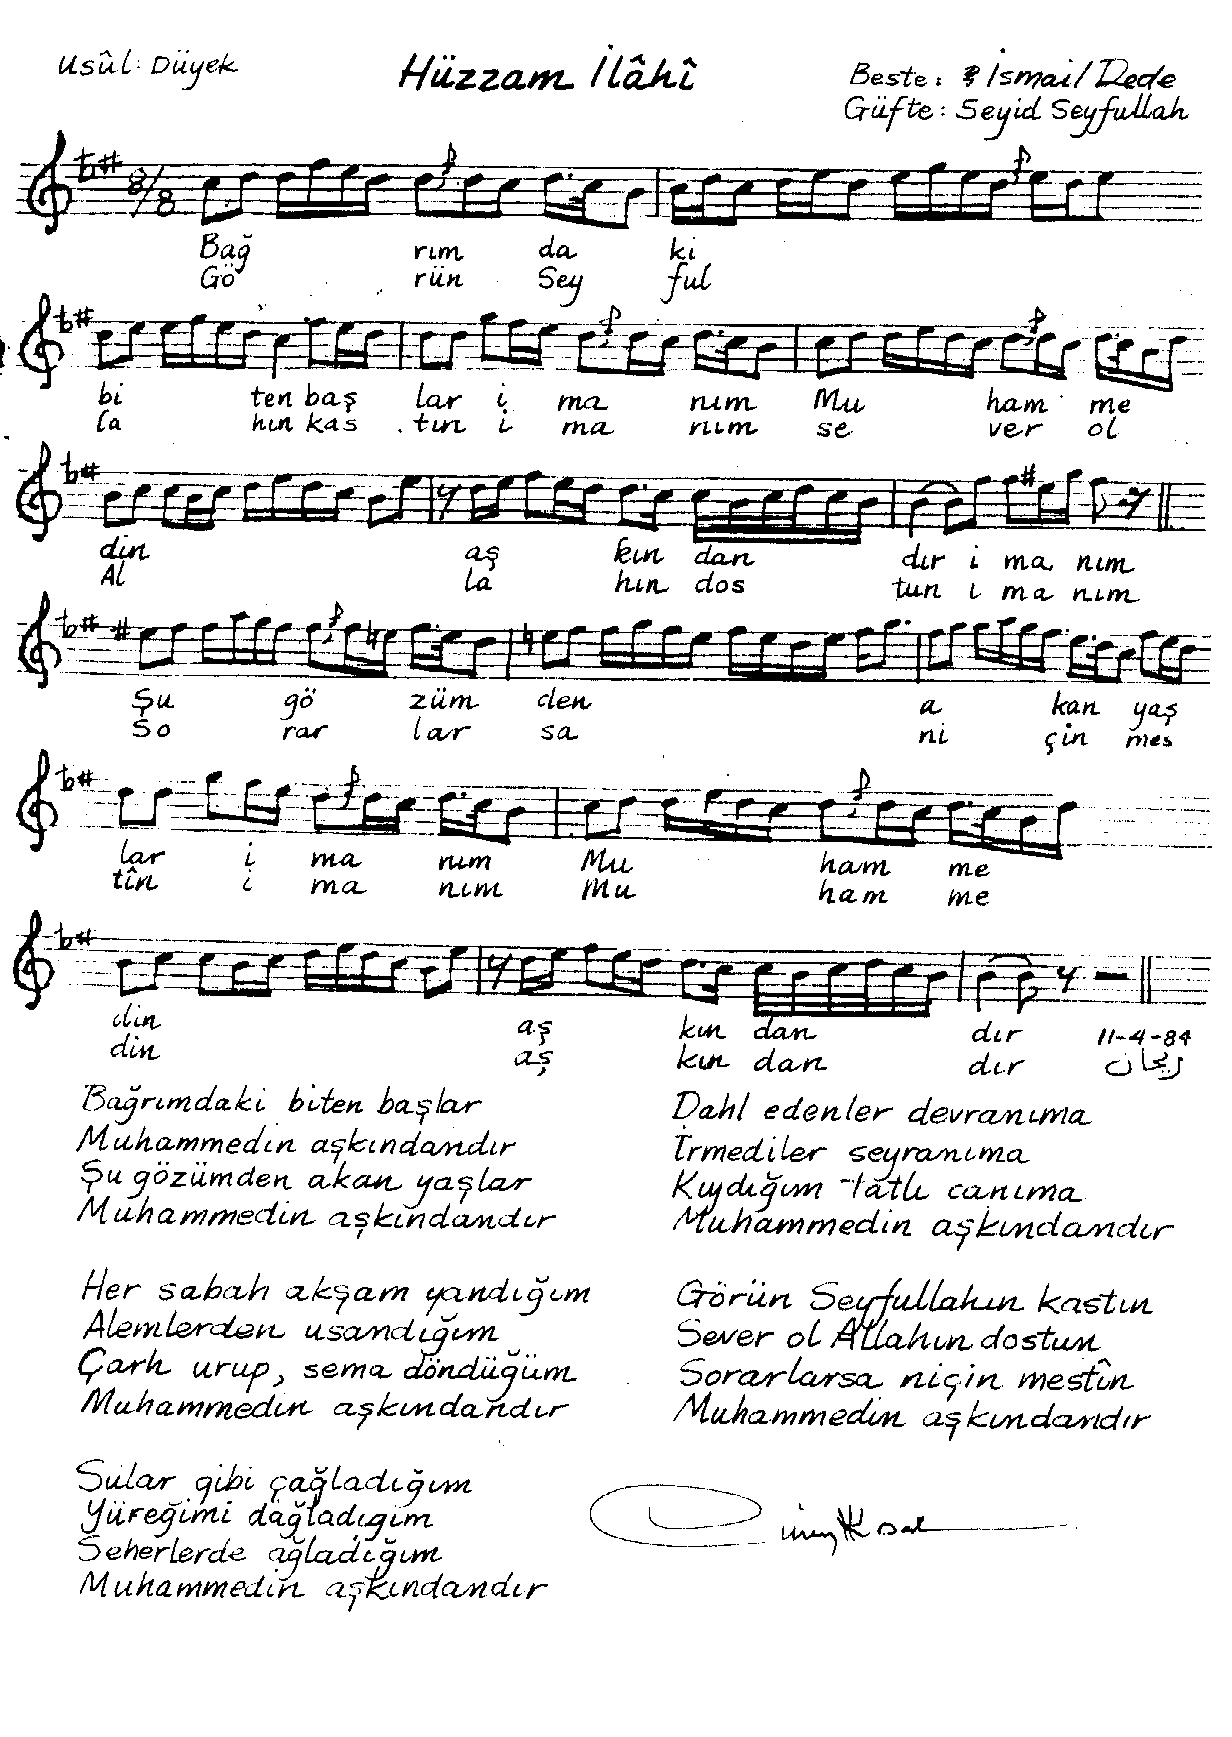 Usûl: Düyek
Hüzzam İlâhî
Beste: İsmail Dede
Güfte: Seyid Seyfullah
8/8
Bağ rım da ki
Gö rün Sey ful
bi ten baş lar i ma nım Mu ham me
la hın kas tın i ma nım se ver ol
din aş kın dan dır i ma nım
Al la hın dos tun i ma nım
Şu gö züm den a kan yaş
So rar lar sa ni çin mes
lar i ma nım Mu ham me
tîn i ma nım Mu ham me
din aş kın dan dır 11-4-84
din aş kın dan dır ریحان
Bağrımdaki biten başlar
Muhammedin aşkındandır
Şu gözümden akan yaşlar
Muhammedin aşkındandır
Her sabah akşam yandığım
Alemlerden usandığım
Çarh urup, sema döndüğüm
Muhammedin aşkındandır
Sular gibi çağladığım
Yüreğimi dağladıgım
Seherlerde ağladığım
Muhammedin aşkındandır
Dahl edenler devranıma
İrmediler seyranıma
Kıydığım tatlı canıma
Muhammedin aşkındandır
Görün Seyfullahın kastın
Sever ol Allahın dostun
Sorarlarsa niçin mestîn
Muhammedin aşkındandır